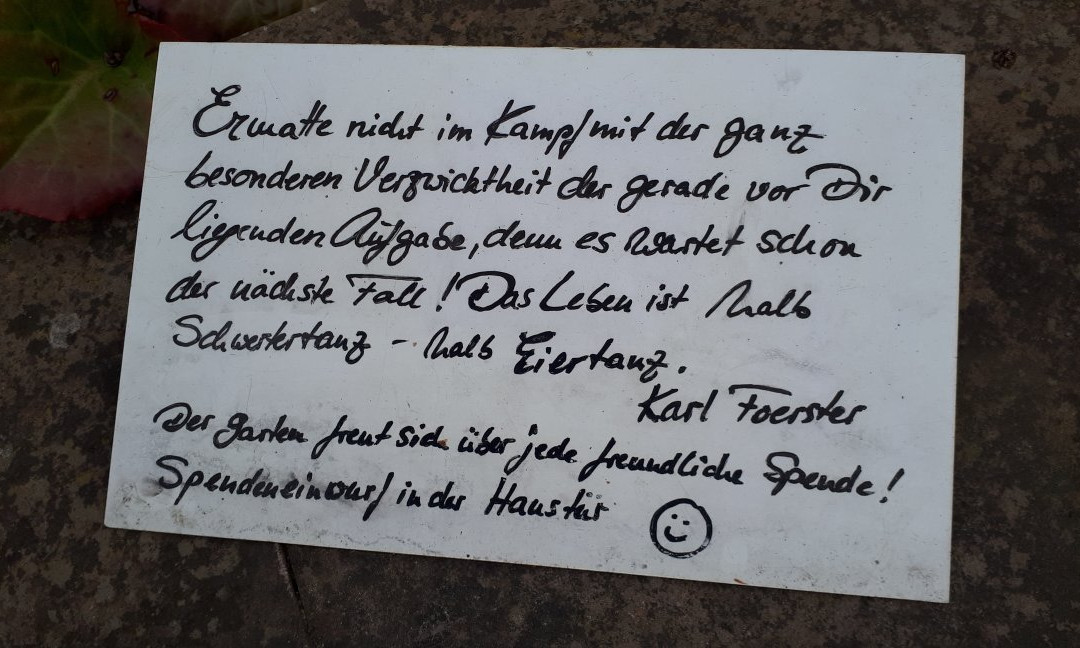 Ermatte nicht im Kampf mit der ganz
besonderen Verzwicktheit der gerade vor Dir
liegenden Aufgabe, denn es wartet schon
der nächste Fall! Das Leben ist halb
Schwertertanz - halb Eiertanz.
Karl Foerster
Der Garten freut sich über jede freundliche Spende!
Spendeneinwurf in der Haustür